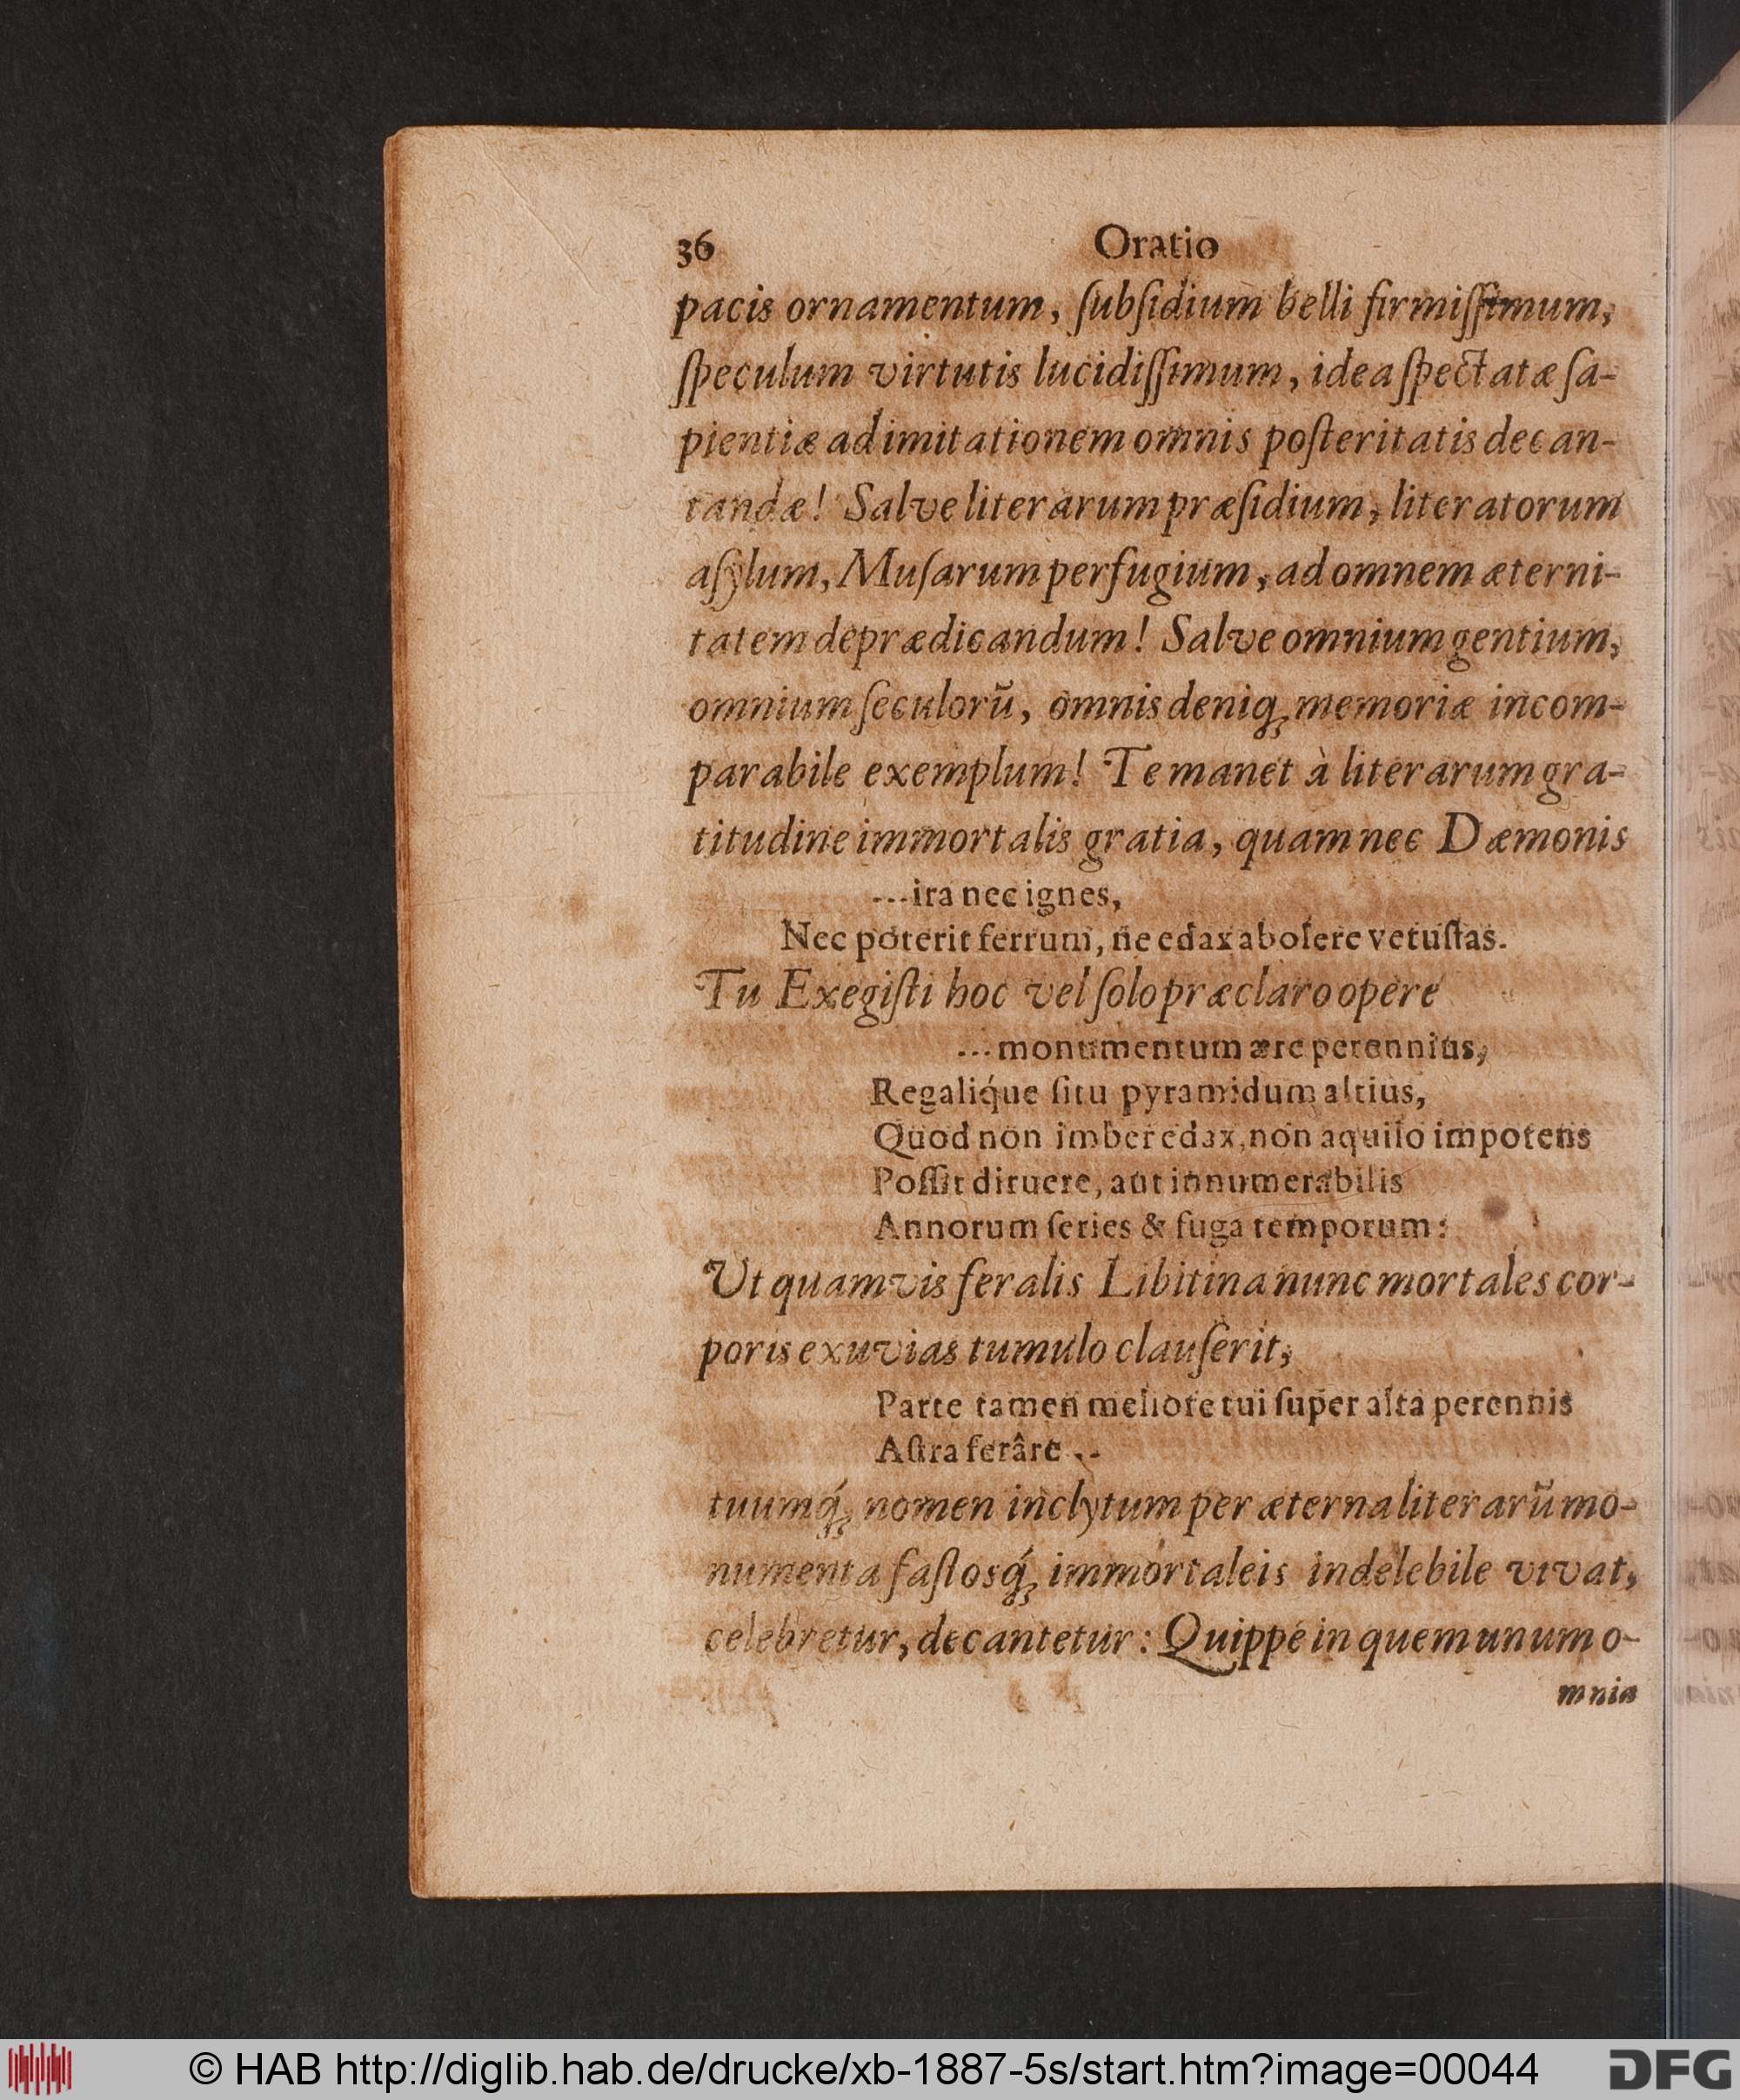 36 Oratio
pacis ornamentum, ſubſidium belli firmiſſimum,
ſpeculum virtutis lucidiſſimum, idea ſpectatæ ſa-
pientiæ ad imitationem omnis poſteritatis decan-
tandæ! Salve literarum præſidium, literatorum
aſylum, Muſarum perfugium, ad omnem æterni-
tatem deprædicandum! Salve omnium gentium,
omnium ſeculorũ, omnis deniq; memoriæ incom-
parabile exemplum! Te manet à literarum gra-
titudine immortalis gratia, quam nec Dæmonis
...ira nec ignes,
Nec poterit ferrum, ne edax abolere vetuſtas.
Tu Exegiſti hoc vel ſolo præclaro opere
...monumentum ære perennius,
Regaliq́ue ſitu pyramidum altius,
Quod non imber edax, non aquilo impotens
Poſſit diruere, aut innumerabilis
Annorum ſeries & fuga temporum:
Ut quamvis feralis Libitina nunc mortales cor-
poris exuvias tumulo clauſerit,
Parte tamen meliore tui ſuper alta perennis
Aſtra ferâre ..
tuumq́; nomen inclytum per æterna literarũ mo-
numenta faſtosq́; immortaleis indelebile vivat,
celebretur, decantetur: Quippe in quem unum o-
mnia
© HAB http://diglib.hab.de/drucke/xb-1887-5s/start.htm?image=00044
DFG